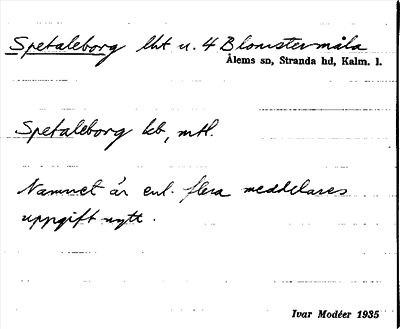 Spetaleborg lht u. 4 Blomstermåla
Ålems sn, Stranda hd, Kalm. l.
Spetaleborg kb, mtl.
Namnet är enl. flera meddelares
uppgift nytt.
Ivar Modéer 1935